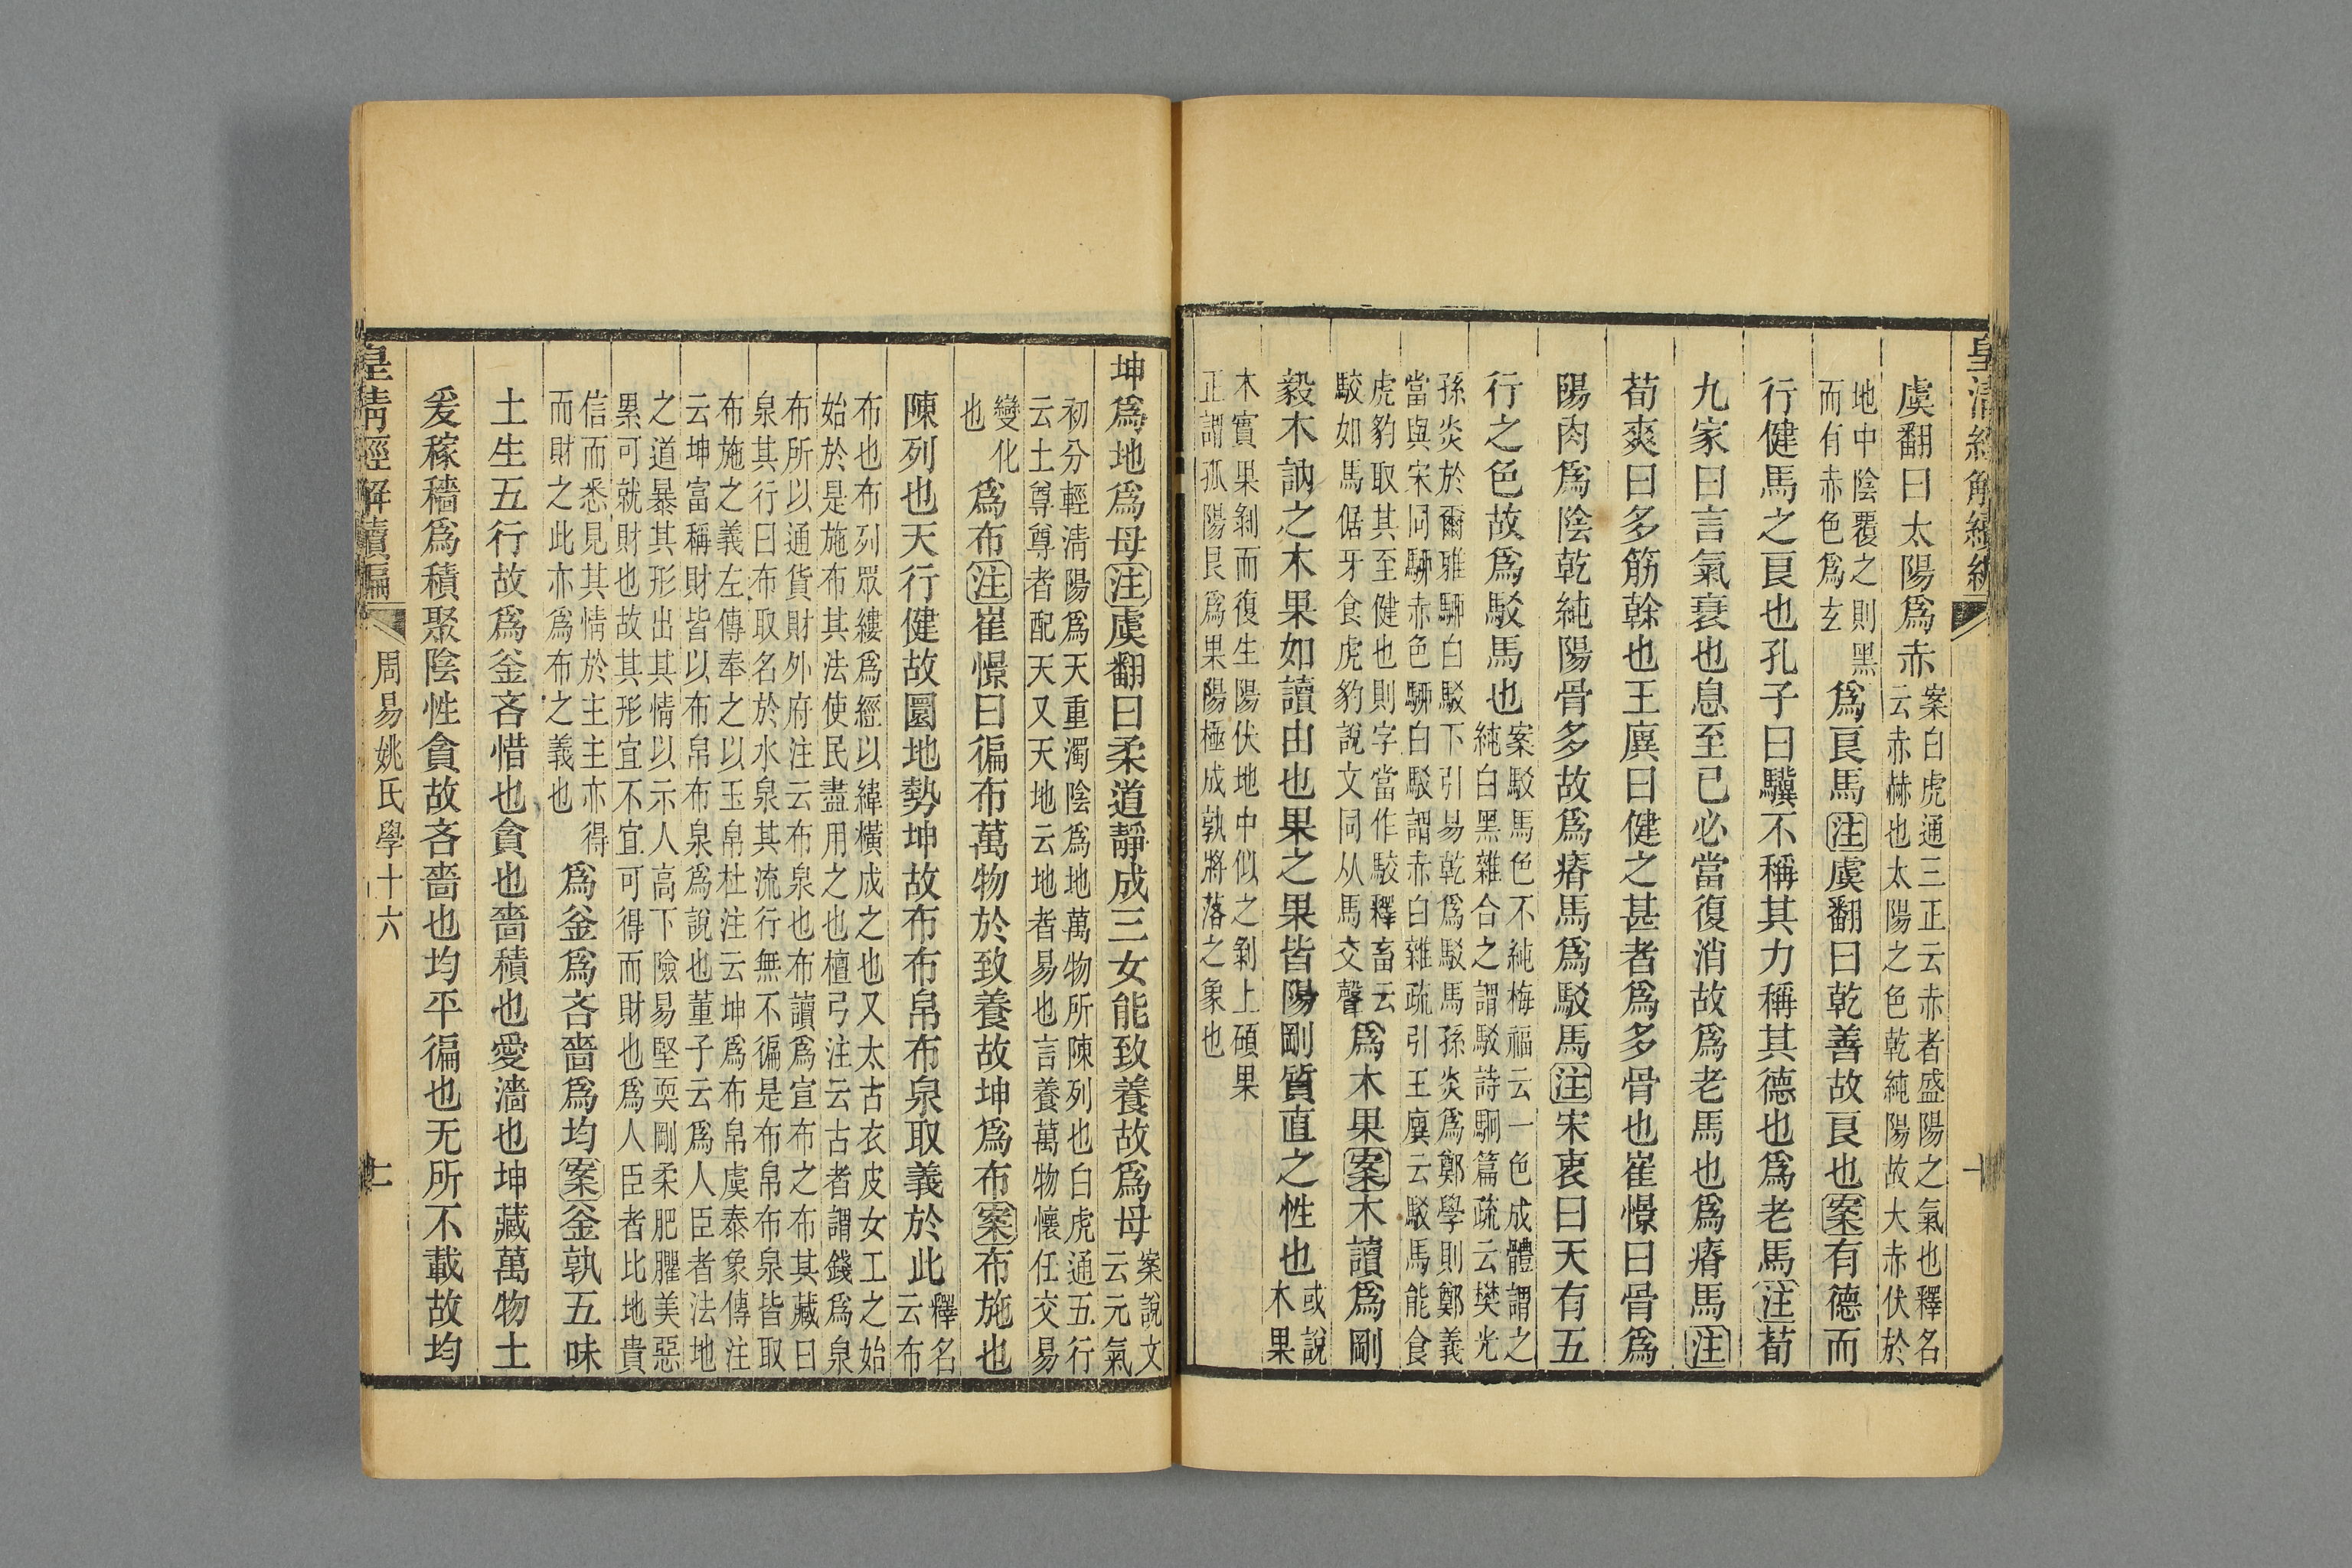 皇清經解續編
虞翻曰太陽爲赤案白虎通三正云赤者盛陽之氣也釋名
云赤赫也太陽之色乾純陽故大赤伏於
地中陰覆之則黑
而有赤色爲玄爲良馬注虞翻曰乾善故良也案有德而
行健馬之良也孔子曰驥不稱其力稱其德也爲老馬注荀
九家曰言氣衰也息至已必當復消故爲老馬也爲瘠馬注
荀爽曰多筋榦也王廙曰健之甚者爲多骨也崔憬曰骨爲
陽肉爲陰乾純陽骨多故爲瘠馬爲駁馬注宋衷曰天有五
行之色故爲駁馬也案駁馬色不純梅福云一色成體謂之
純白黑雜合之謂駁詩駉篇疏云樊光
孫炎於爾雅騢白駁下引易乾爲駁馬孫炎爲鄭學則鄭義
當與宋同騢赤色騢白駁謂赤白雜疏引王廙云駁馬能食
虎豹取其至健也則字當作駮釋畜云
駮如馬倨牙食虎豹說文同从馬交聲爲木果案木讀爲剛
毅木訥之木果如讀由也果之果皆陽剛質直之性也或說
木果
木實果剝而復生陽伏地中似之剝上碩果
正謂孤陽艮爲果陽極成孰將落之象也
坤爲地爲母注虞翻曰柔道靜成三女能致養故爲母案說文
云元氣
初分輕淸陽爲天重濁陰爲地萬物所陳列也白虎通五行
云土尊尊者配天又天地云地者易也言養萬物懷任交易
變化
也爲布注崔憬曰徧布萬物於致養故坤爲布案布施也
陳列也天行健故圜地勢坤故布布帛布泉取義於此釋名
云布
布也布列眾縷爲經以緯橫成之也又太古衣皮女工之始
始於是施布其法使民盡用之也檀弓注云古者謂錢爲泉
布所以通貨財外府注云布泉也布讀爲宣布之布其藏曰
泉其行曰布取名於水泉其流行無不徧是布帛布泉皆取
布施之義左傳奉之以玉帛杜注云坤爲布帛虞泰象傳注
云坤富稱財皆以布帛布泉爲說也董子云爲人臣者法地
之道暴其形出其情以示人高下險易堅耎剛柔肥臞美惡
累可就財也故其形宜不宜可得而財也爲人臣者比地貴
信而悉見其情於主主亦得
而財之此亦爲布之義也爲釜爲吝嗇爲均案釜孰五味
土生五行故爲釜吝惜也貪也嗇積也愛濇也坤藏萬物土
爰稼穡爲積聚陰性貪故吝嗇也均平徧也无所不載故均
皇淸經解續編
周易姚氏學十六